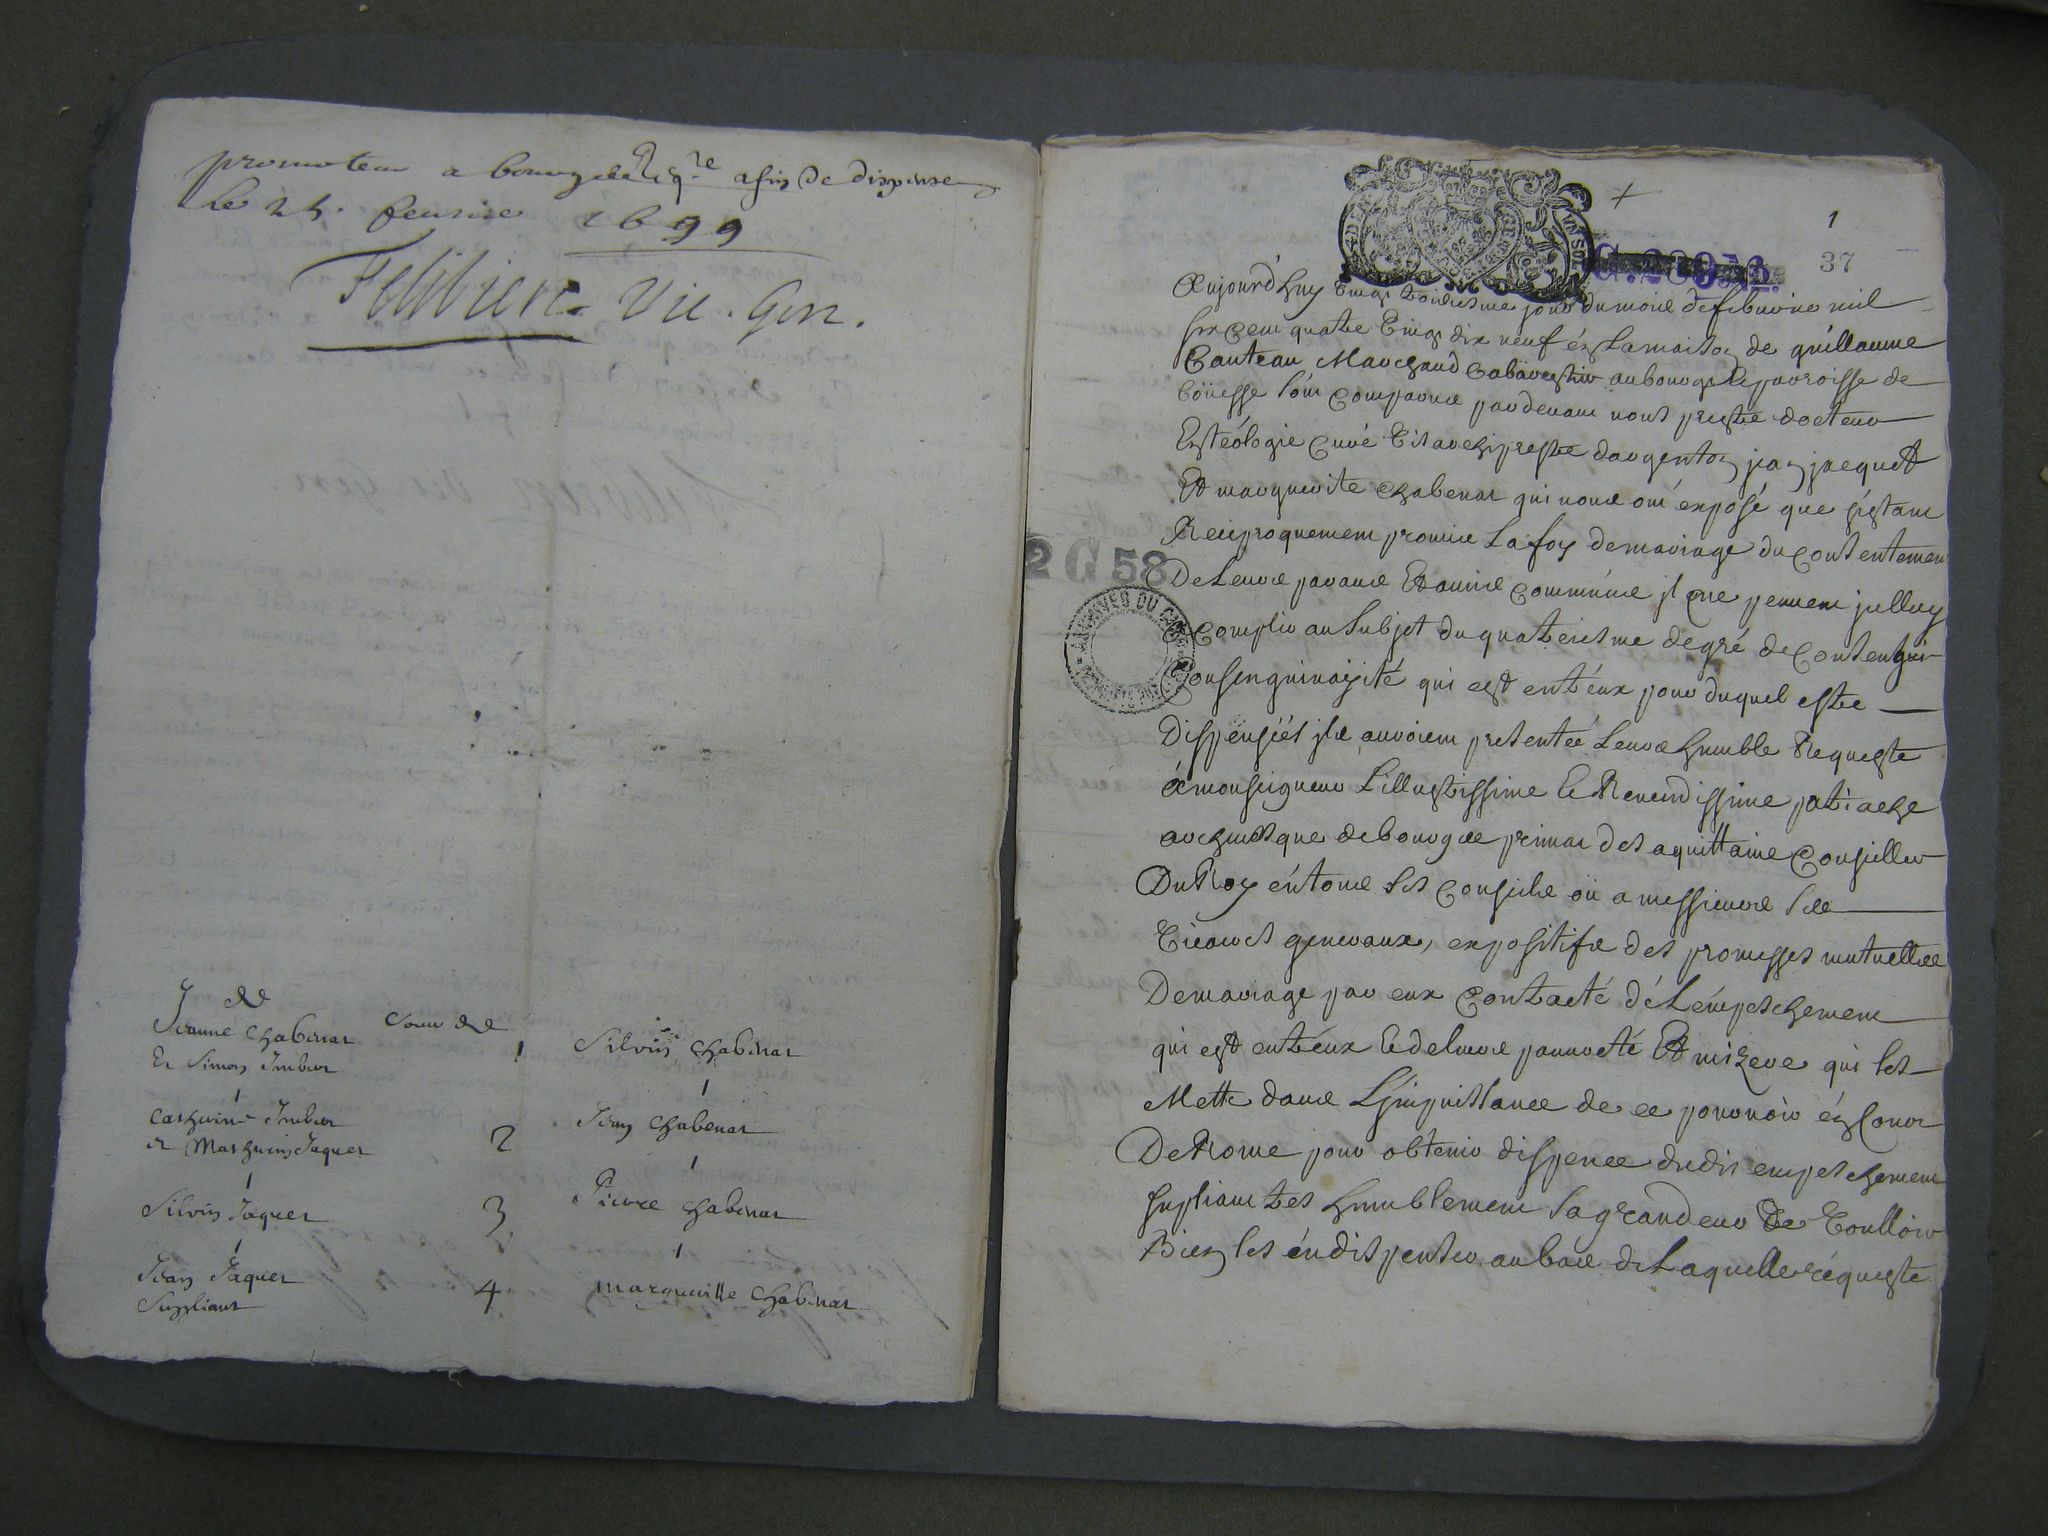 promoteur a bourges Reqre afin de dispense
le 25. feurier 1699
Felibien. Vic. Gen.
J de
Jeanne Chabenat soeur de
et Simon Imber 1 Silvin Chabenat
Catherine Imber Jean Chabenat
et Mathurin Jaquet 2
Silvin Jaquet 3 Pierre Chabenat
Jean Jaquet 4 marguerite Chabenat
Supliant
2 58
ARCHIVES DU CHER
+
1
37
Aujourd'huy vingt troiziesme jour du mois de febvrier mil
six cent quatre vingt dix neuf en la maison de guillaume
Cauteau Marchand Cabarestier au bourg et parroisse de
boüesse sont comparus pardevant nous prestre docteur
En téologie curé et archiprestre d'argenton jean jacquet
Et marguerite chabenat qui nous ont exposé que s'estant
Reciproquement promis la foy de mariage du consentement
De leurs parans Et amis communs il ne peuvent jcelluy
acomplir au subjet du quatriesme degré de consengui
Consenguinayité qui est entéux pour duquel estre
Dispenséés ils auroient presentée leurs humble Requeste
A monseigneur L'illustrissime et Reverendissime patriache
archevesque de bourges primat des aquittaine Conseiller
Du Roy én tous ses Conseils où a messieurs ses
Vicaires generaux, expositifs des promesses mutuelles
De mariage par eux contracté dé L'émpeschement
qui est entéux Et de leurs pauvreté Et mizere qui les
Mette dans L'jmpuissance de se pourvoir én Cour
De Rome pour obtenir dispence dudit empeschement
supliant tres humblement sa grandeur De Voulloir
Bien les én dispenser au bas de Laquelle réqueste